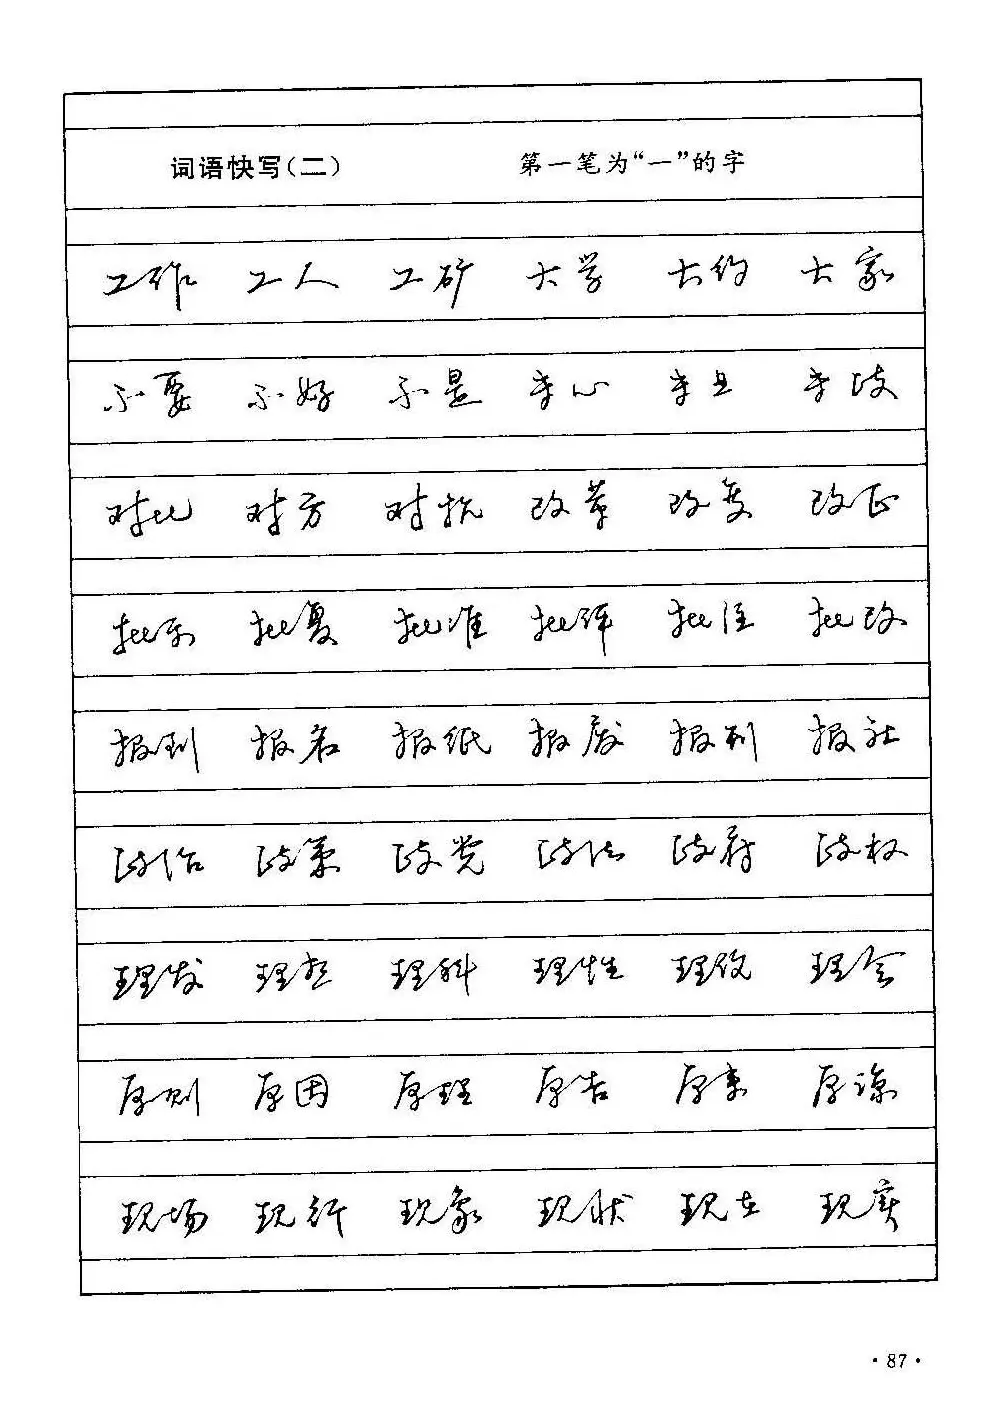 词语快写(二) 第一笔为“一”的字
工作 工人 工矿 大学 大约 大家
不要 不好 不是 李心
对比 对方 对抗 改革 改变 改正
批示 批复 批准 批评 批注 批改
报到 报名 报纸 报废 报刊 报社
政治 政策 政党 政法 政府 政权
理发 理想 理科 理性 理顺 理会
原则 原因 原理 原告 原来 原谅
现场 现行 现象 现状 现在 现实
·87·